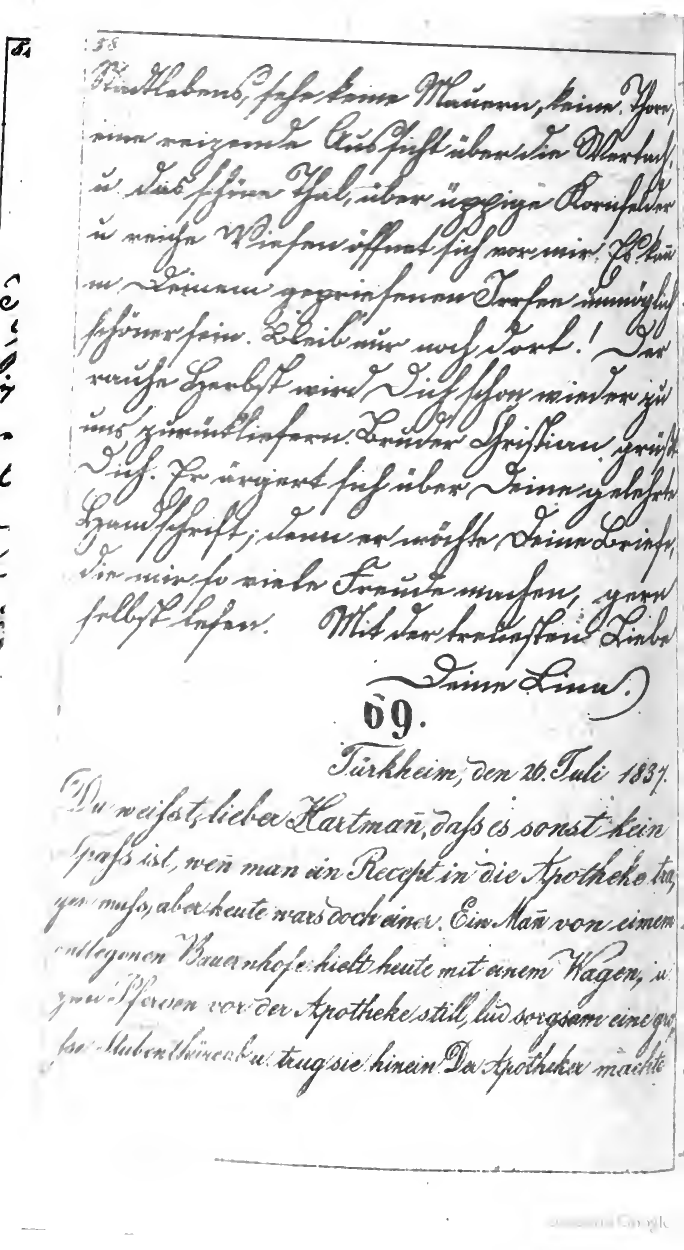 58
Stadtlebens, sehe keine Mauern, keine Thore,
eine reizende Aussicht über die Wertach,
u. das schöne Thal, über üppige Kornfelder
u reiche Wiesen öffnet sich vor mir. Es kan̄
in Deinem gepriesenen unmöglich
schöner sein. Bleib nur noch dort! Der
rauhe Herbst wird Dich schon wieder zu
uns zurückliefern. Bruder Christian grüßt
Dich. Er ärgert sich über Deine gelehrte
Handschrift; denn er möchte Deine Briefe,
die mir so viele Freude machen, gern
selbst lesen. Mit der treuesten Liebe
Deine Lina.
69.
Türkheim, den 26. Juli 1837.
Du weisst, lieber Hartman̄, dass es sonst kein
Spass ist, wen̄ man ein Recept in die Apotheke tra,
gen muss, aber heute wars doch einer. Ein Man̄ von einem
entlegenen Bauernhofe hielt heute mit einem Wagen, u
zwei Pferden vor der Apotheke still, lud sorgsam eine gros,
se Stubenthüre ab u. trug sie hinein Der Apotheker machte